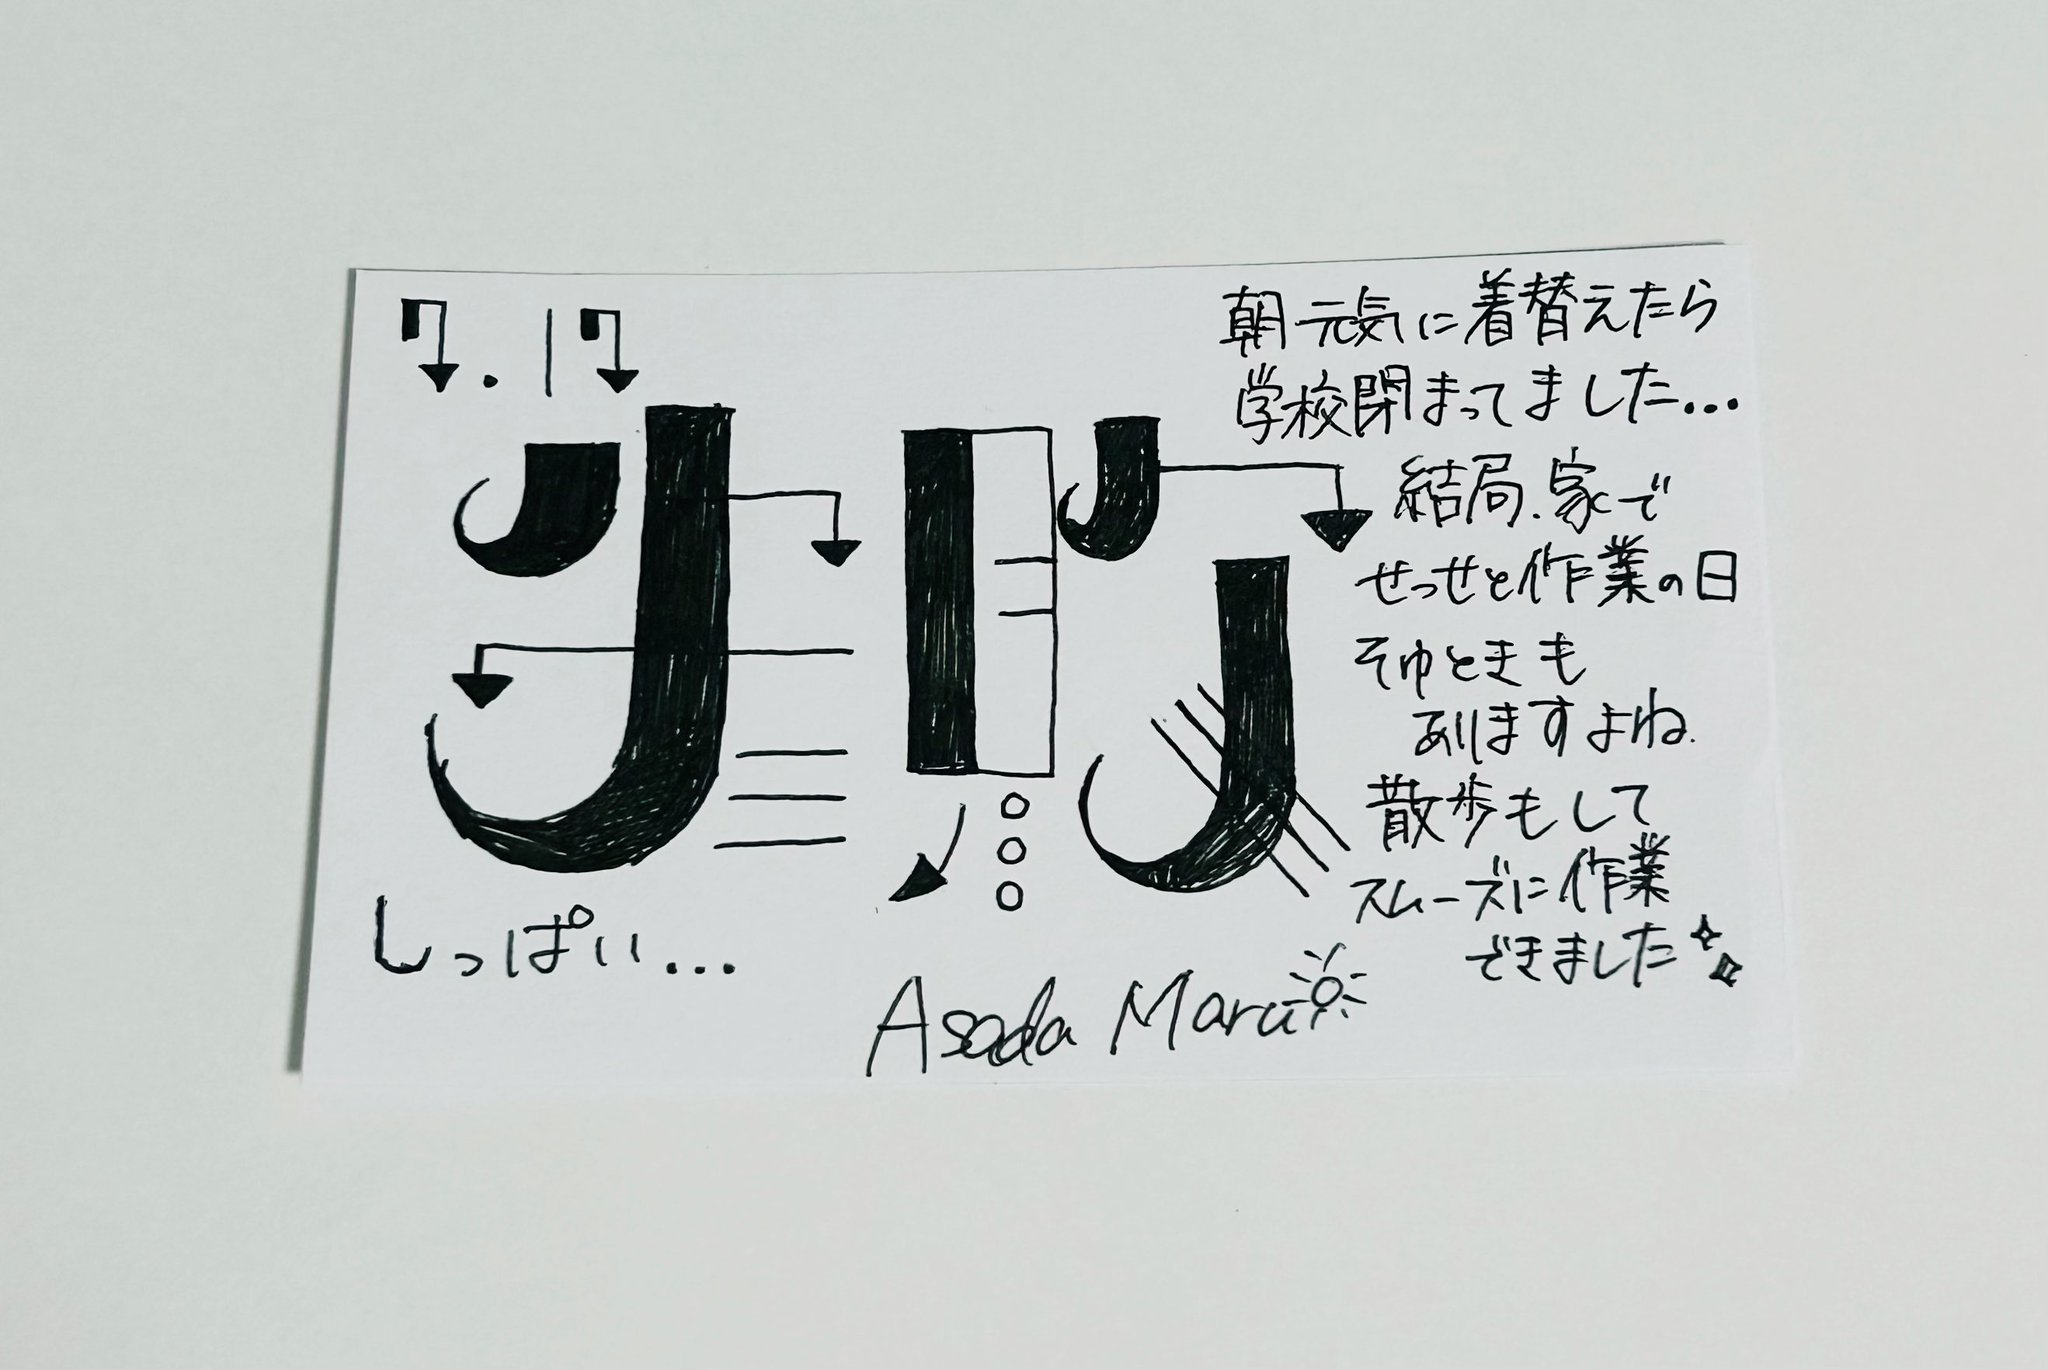 7.17
しっぱい...
朝元気に着替えたら
学校閉まってました...
結局、家で
せっせと作業の日
そゆときも
ありますよね。
散歩もして
スムーズに作業
できました
Asada Maru